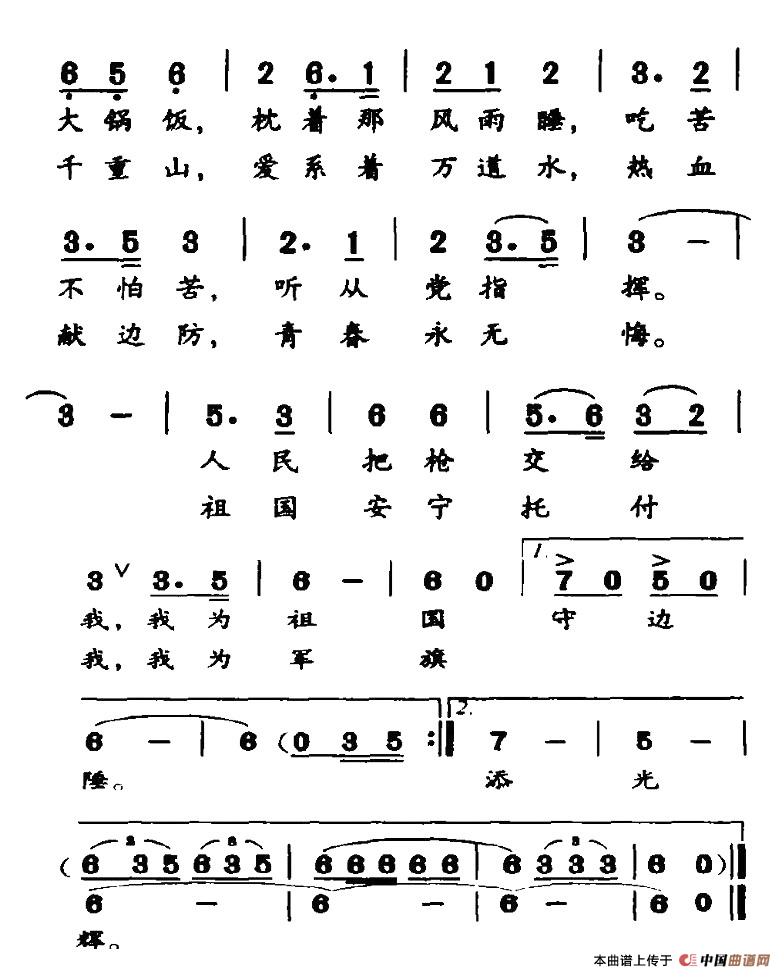 6 5 6 | 2 6. 1 | 2 1 2 | 3. 2 |
大锅饭，枕着那风雨睡，吃苦
千重山，爱系着万道水，热血
3. 5 3 | 2. 1 | 2 3. 5 | 3 – |
不怕苦，听从党指挥。
献边防，青春永无悔。
3 – | 5. 3 | 6 6 | 5. 6 3 2 |
人民把枪交给
祖国安宁托付
1.
3 ∨ 3. 5 | 6 – | 6 0 | 7 0 5 0 |
我，我为祖国守边
我，我为军旗
2.
6 – | 6 (0 3 5 :| 7 – | 5 – |
陲。添光
3 3 3
(6 3 5 6 3 5 | 6 6 6 6 6 6 | 6 3 3 3 | 6 0) ‖
6 – | 6 – | 6 – | 6 0 ‖
辉。
本曲谱上传于 中国曲谱网